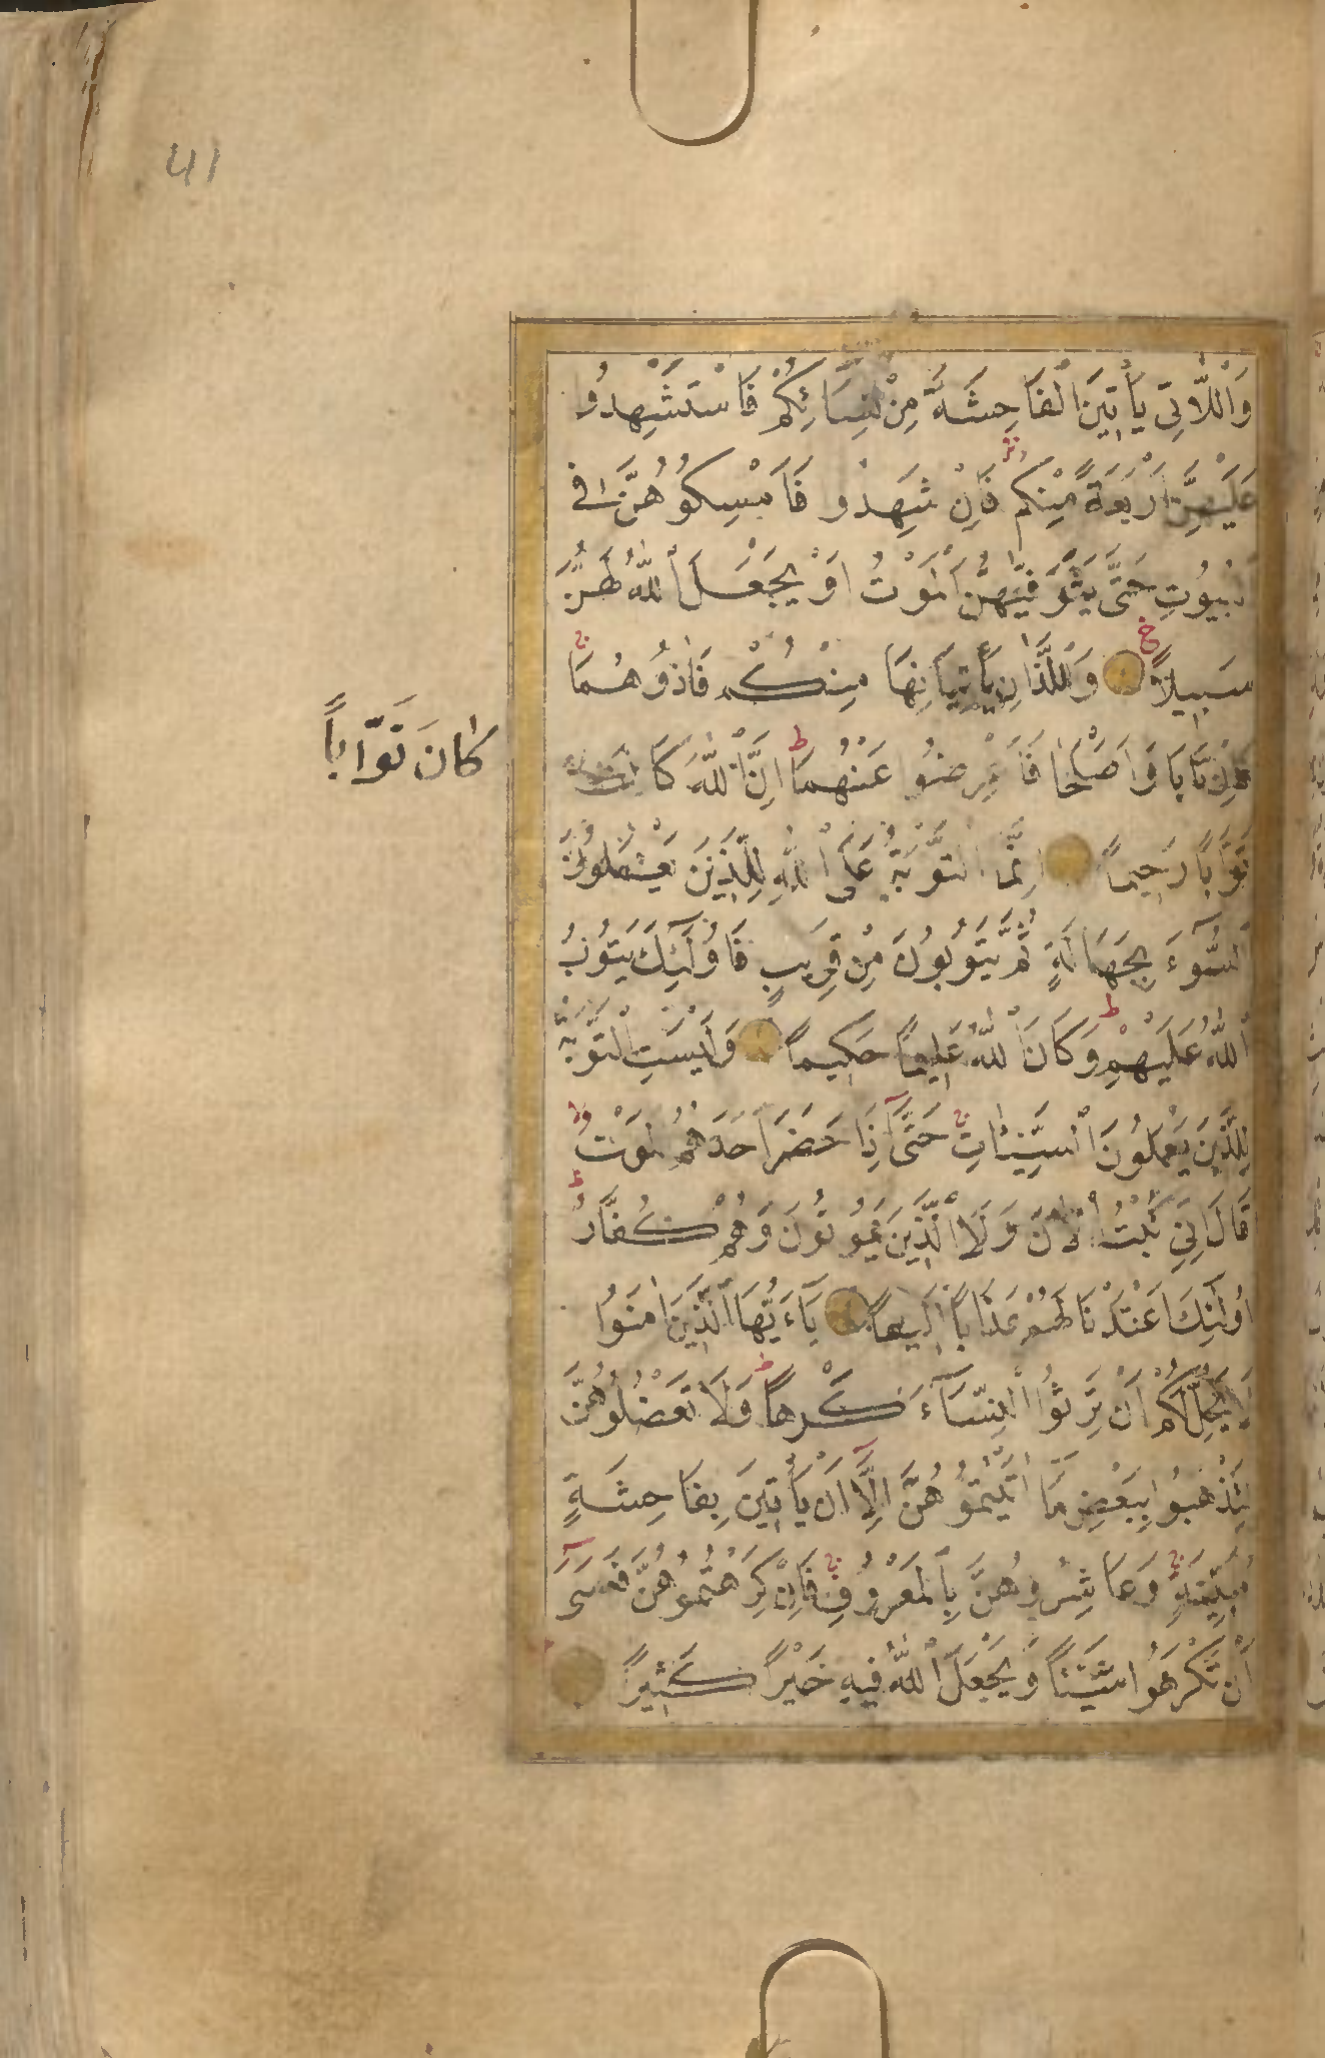 41
وَاللَّاتِي يَأْتِينَ الْفَاحِشَةَ مِنْ نِسَائِكُمْ فَاسْتَشْهِدُوا
عَلَيْهِنَّ أَرْبَعَةً مِنْكُمْ فَإِنْ شَهِدُوا فَأَمْسِكُوهُنَّ فِي
الْبُيُوتِ حَتَّى يَتَوَفَّيهُنَّ الْمَوْتُ أَوْ يَجْعَلَ اللَّهُ لَهُنَّ
سَبِيلاً وَاللَّذَانِ يَأْتِيَانِهَا مِنْكُمْ فَآذُوهُمَا
فَإِنْ تَابَا وَأَصْلَحَا فَأَعْرِضُوا عَنْهُمَا إِنَّ اللَّهَ كَانَ
تَوَّابًا رَحِيمًا إِنَّمَا التَّوْبَةُ عَلَى اللَّهِ لِلَّذِينَ يَعْمَلُونَ
السُّوءَ بِجَهَالَةٍ ثُمَّ يَتُوبُونَ مِنْ قَرِيبٍ فَأُولَئِكَ يَتُوبُ
اللَّهُ عَلَيْهِمْ وَكَانَ اللَّهُ عَلِيمًا حَكِيمًا وَلَيْسَتِ التَّوْبَةُ
لِلَّذِينَ يَعْمَلُونَ السَّيِّئَاتِ حَتَّى إِذَا حَضَرَ أَحَدَهُمُ الْمَوْتُ
قَالَ إِنِّي تُبْتُ الْآنَ وَلَا الَّذِينَ يَمُوتُونَ وَهُمْ كُفَّارٌ
أُولَئِكَ أَعْتَدْنَا لَهُمْ عَذَابًا أَلِيمًا يَآءَيُّهَا الَّذِينَ آمَنُوا
لَا يَحِلُّ لَكُمْ أَنْ تَرِثُوا النِّسَآءَ كَرْهًا وَلَا تَعْضُلُوهُنَّ
لِتَذْهَبُوا بِبَعْضِ مَا آتَيْتُمُوهُنَّ إِلَّا أَنْ يَأْتِينَ بِفَاحِشَةٍ
مُبَيِّنَةٍ وَعَاشِرُوهُنَّ بِالْمَعْرُوفِ فَإِنْ كَرِهْتُمُوهُنَّ فَعَسَى
أَنْ تَكْرَهُوا شَيْئًا وَيَجْعَلَ اللَّهُ فِيهِ خَيْرًا كَثِيرًا
كَانَ تَوَّابًا